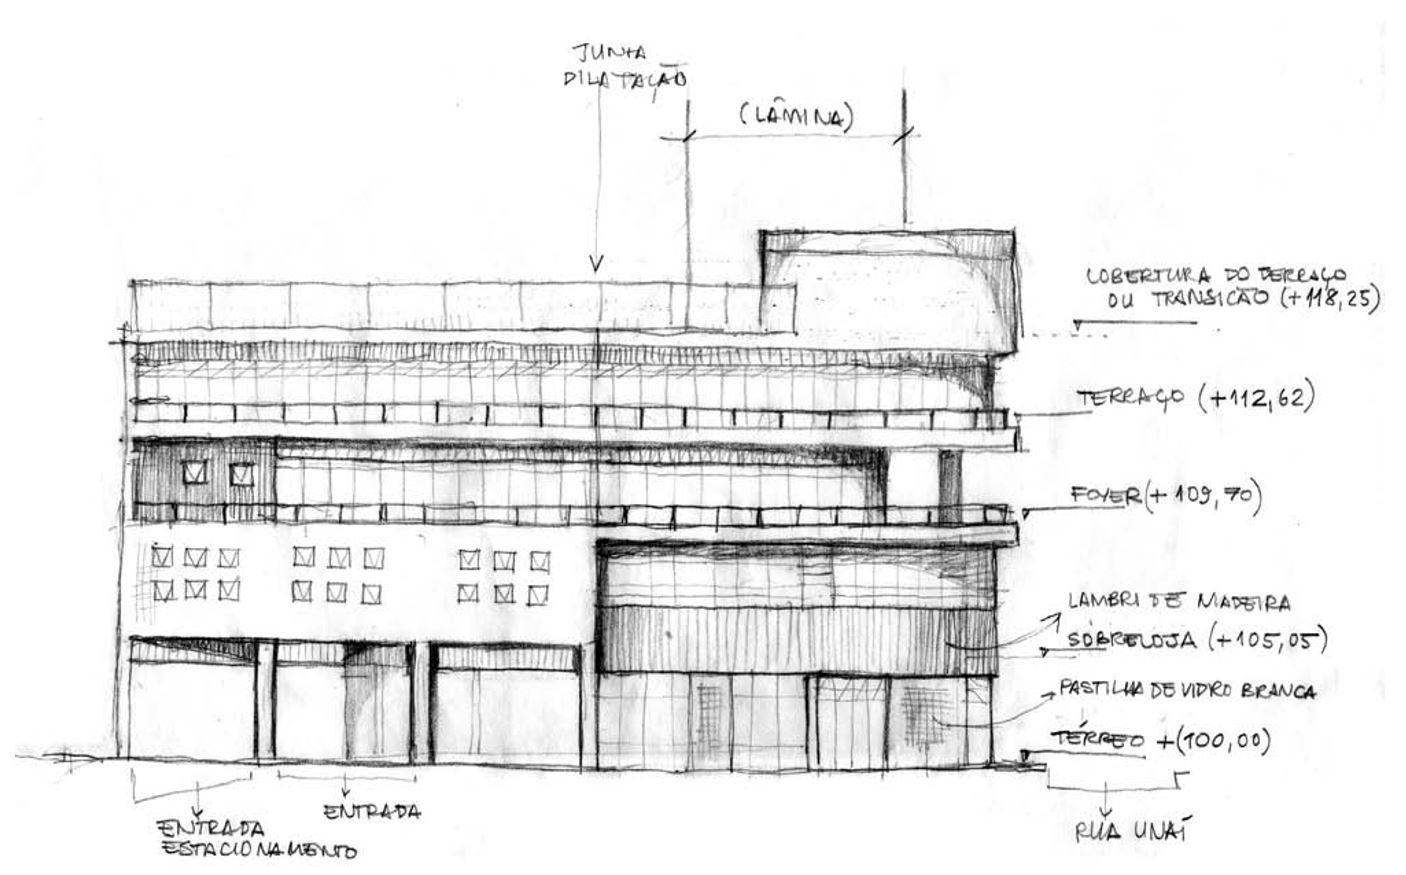 JUNTA
DILATAÇÃO
(LÂMINA)
COBERTURA DO TERRAÇO
OU TRANSIÇÃO (+118,25)
TERRAÇO (+112,62)
FOYER (+109,70)
LAMBRI DE MADEIRA
SOBRELOJA (+105,05)
PASTILHA DE VIDRO BRANCA
TÉRREO +(100,00)
ENTRADA
ESTACIONAMENTO
ENTRADA
RUA UNAÍ